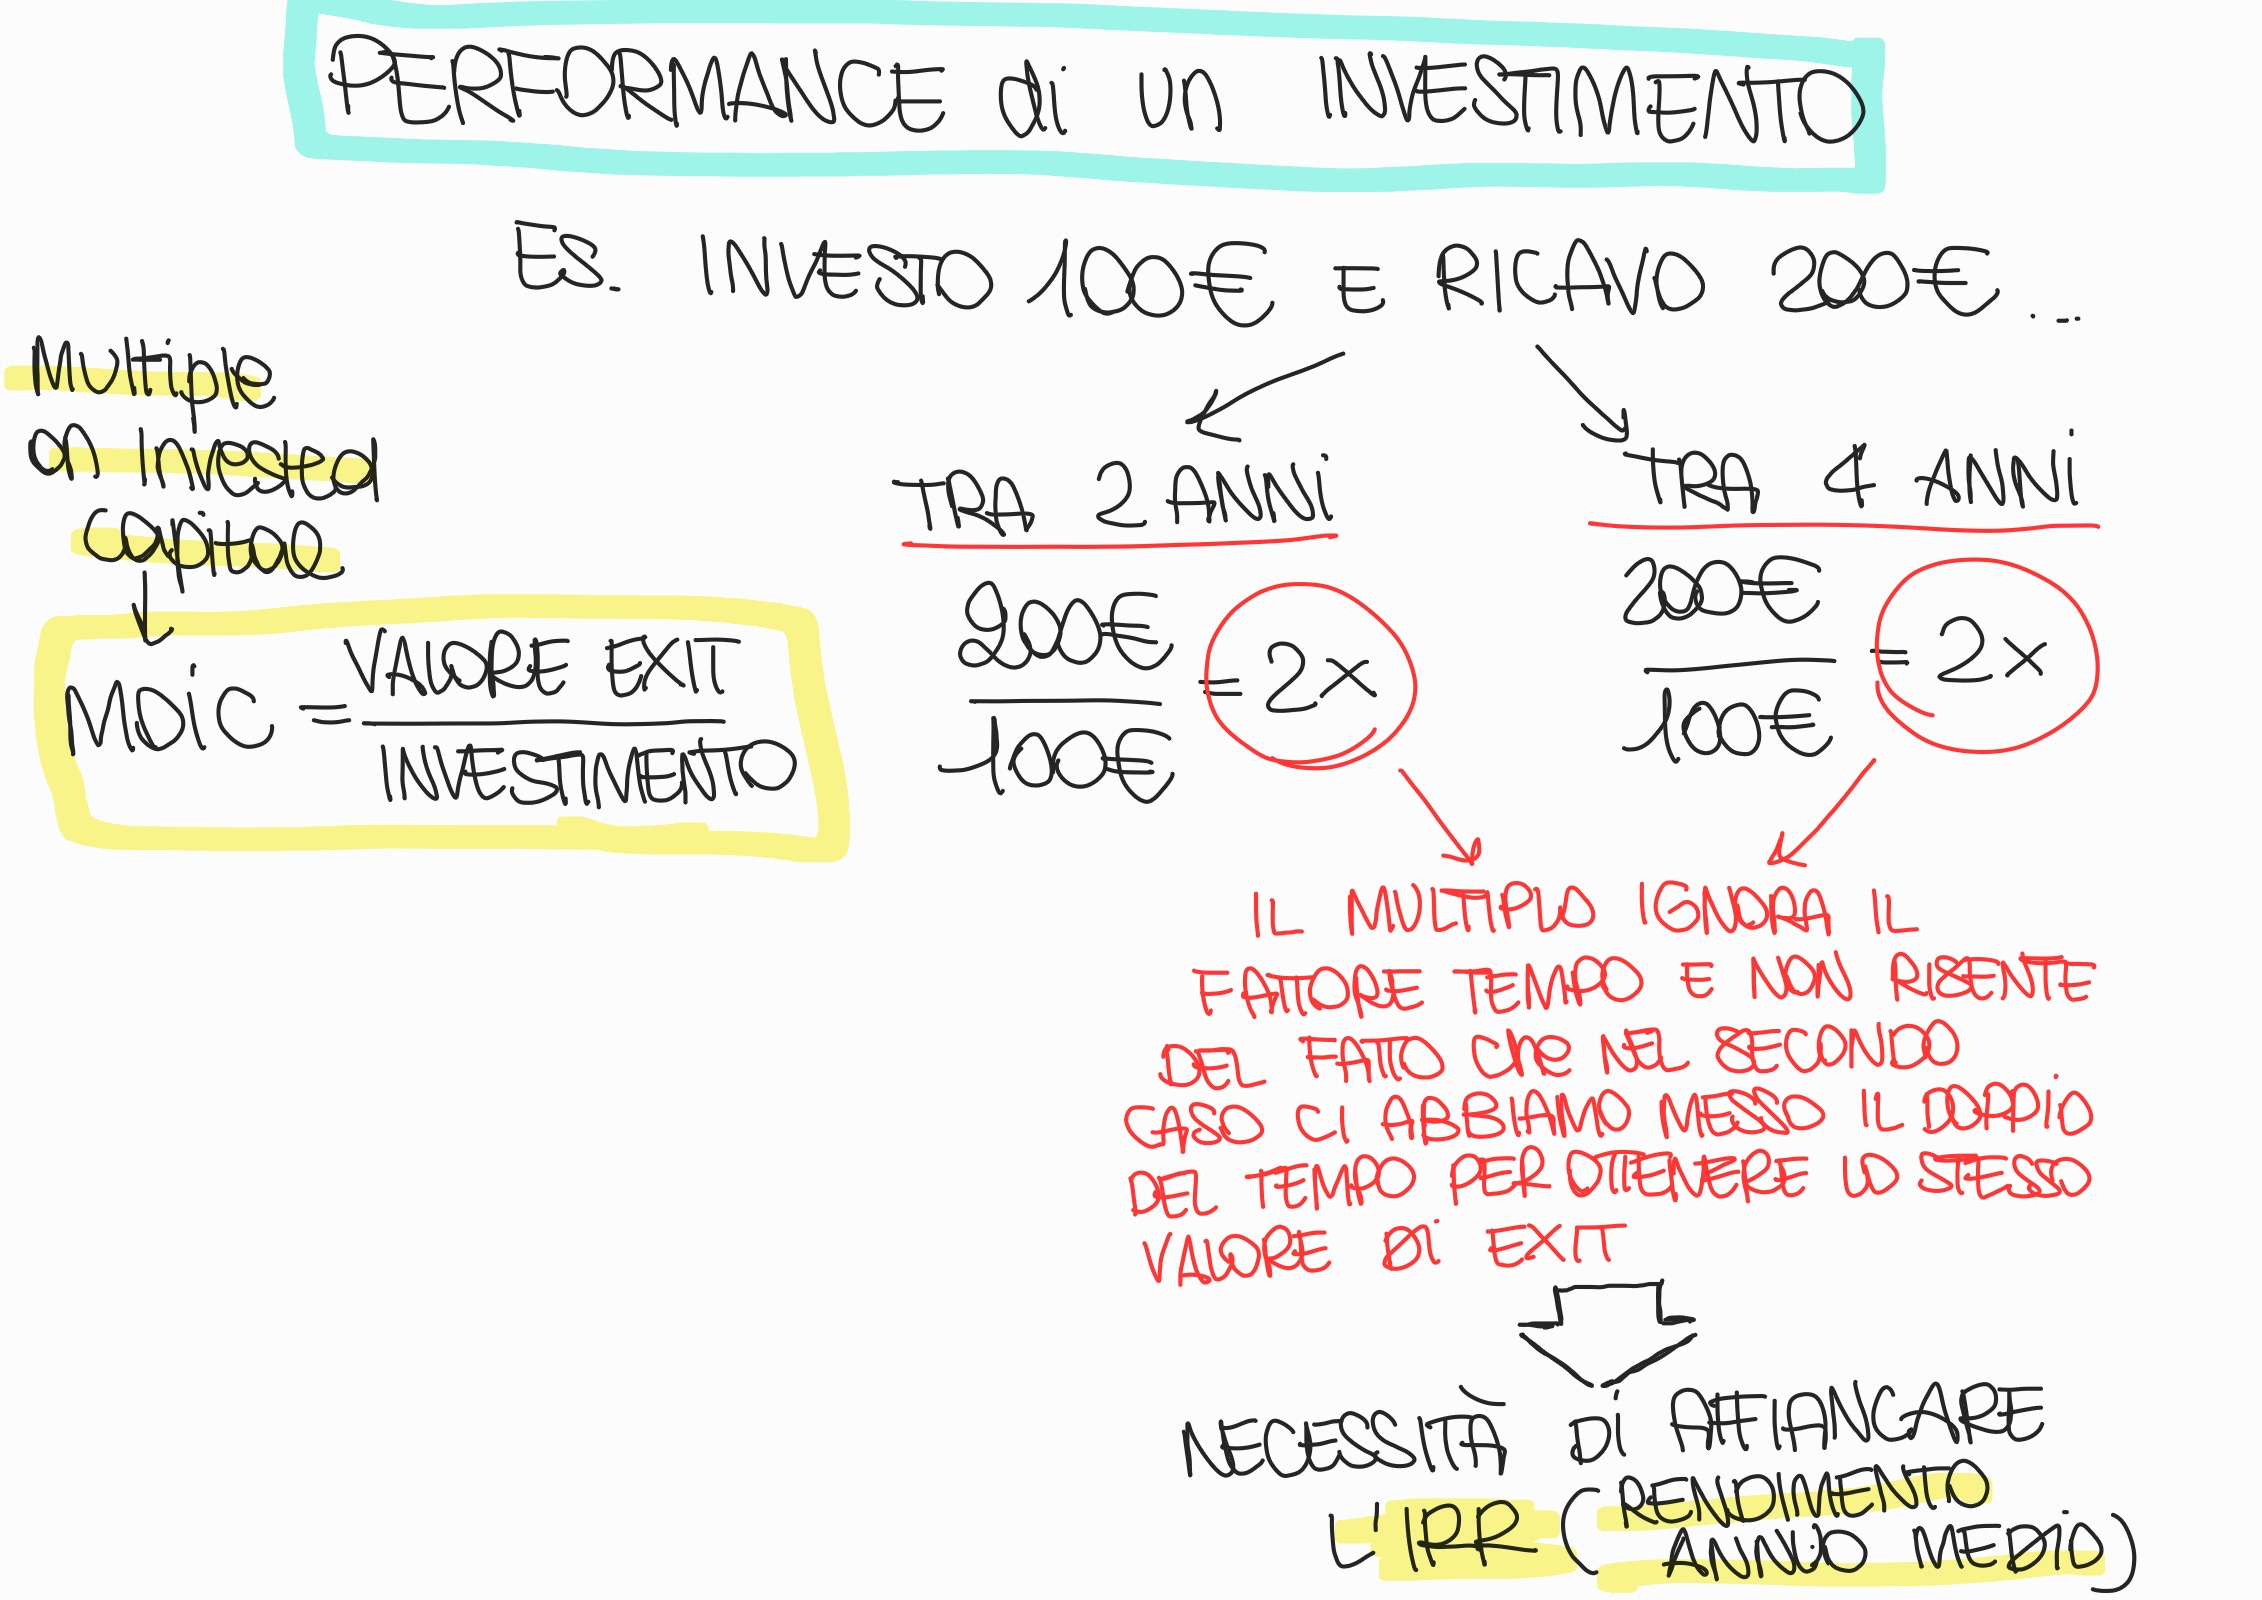 PERFORMANCE di UN INVESTIMENTO
ES. INVESTO 100€ E RICAVO 200€ ...
Multiple
on invested
capital
MOiC = VALORE EXIT
INVESTIMENTO
TRA 2 ANNi
200€
= 2x
100€
TRA 4 ANNi
200€
= 2x
100€
IL MULTIPLO IGNORA IL
FATTORE TEMPO E NON RISENTE
DEL FATTO CHE NEL SECONDO
CASO CI ABBIAMO MESSO IL DOPPiO
DEL TEMPO PER OTTENERE LO STESSO
VALORE Di EXIT
NECESSITÀ Di AFFIANCARE
L'IRR (RENDIMENTO
ANNUO MEDiO)